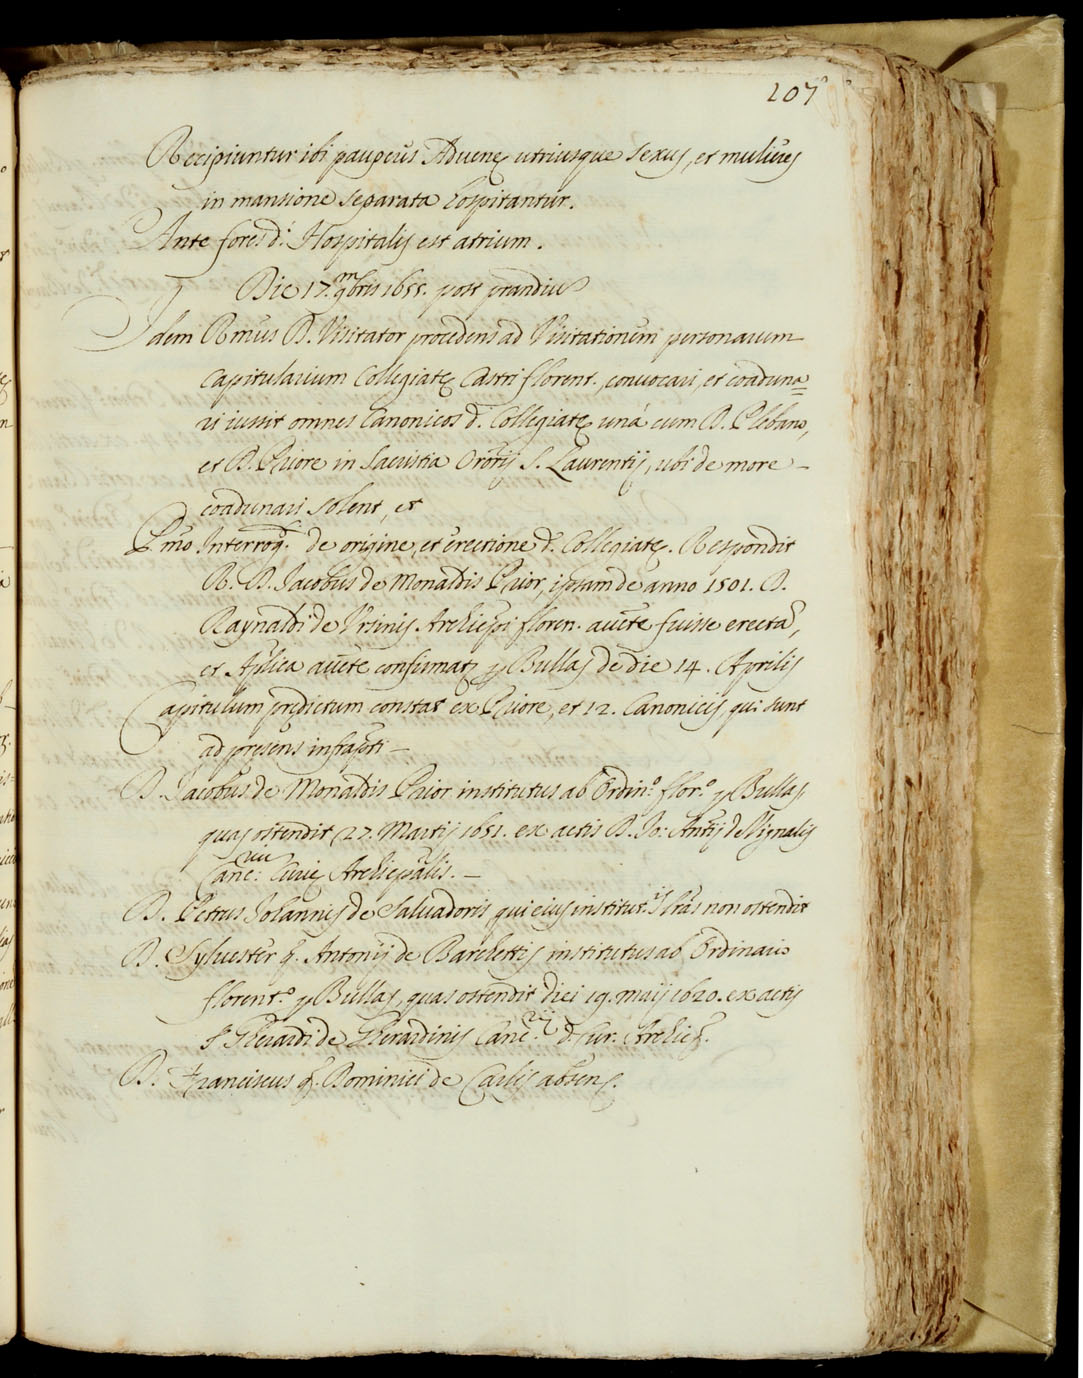 207
Recipiuntur ibi pauperes Aduenę utriusque sexus, et mulieres
in mansione separata hospitantur.
Ante fores d.ⁱ Hospitalis est atrium.
Die 17. 9mbris 1655. post prandiũ
Idem Rmus D. Visitator procedens ad Visitationem personarum
Capitularium Collegiatę Castri floren., conuocari, et coaduna=
ri iussit omnes Canonicos d. Collegiatę unà cum D. Plebano,
et D. Priore in Sacristia Orõrij S. Laurentij, ubi de more
coadunari solent, et
Pmo Interrog. de origine, et erectione d. Collegiatę. Respondit
R. D. Jacobus de Monaldis Prior, ipsam de anno 1501. D.
Raynaldi de Vrsinis Archiepi floren. aucte fuisse erectã,
et Aplica aucte confirmat, p Bullas de die 14. Aprilis
Capitulum prędictum constat ex Priore, et 12. Canonicis, qui sunt
ad pręsens infrapti
D. Jacobus de Monaldis Prior institutus ab Ordin.º flor.º p Bullas,
quas ostendit 27. Martij 1651. ex actis D. Jo: Antij de Mignalis
Canc: rii Curię Archiepalis.
D. Petrus Iohannis de Saluadoris qui eius institut.is lras non ostendit
D. Syluester q. Antonij de Barchettis institutus ab Ordinario
florent.º p Bullas, quas ostendit diei 19. maij 1620. ex actis
s. Gherardi de Gherardinis Canc.rij d. Cur. Archiep.
D. Franciscus q. Dominici de Carlis absens.